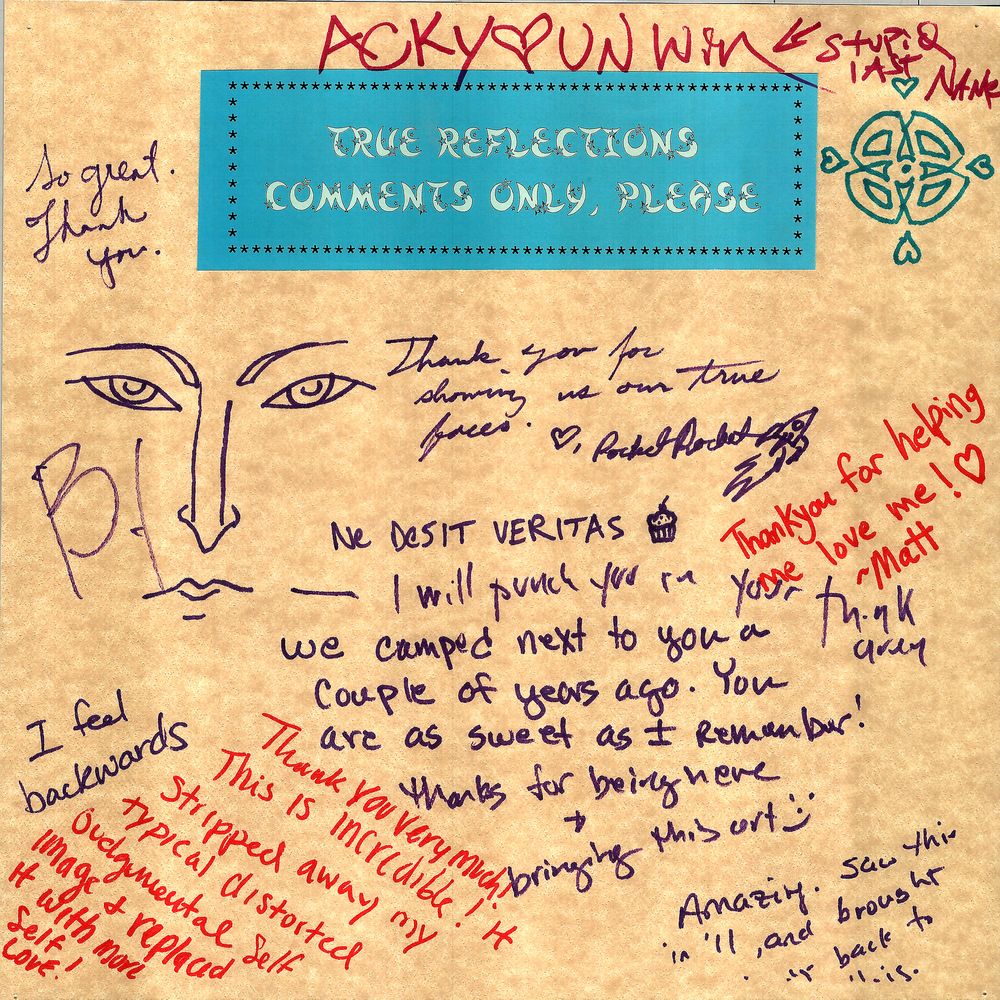 ACKY UN Win
STUPID
LAST
NAME
TRUE REFLECTIONS
COMMENTS ONLY, PLEASE
So great.
Thank
you.
Thank you for
showing us our true
faces.
, Pocket Rocket
Thankyou for helping
me love me!
~Matt
NE DESIT VERITAS
I will punch you in your
think
we camped next to you a
couple of years ago. You
are as sweet as I Remember!
Thanks for being here
+
bringing this art
I feel
backwards
Thank you very much!
This is incredible! It
stripped away my
typical distorted
Judgemental self
image & replaced
it with more
self
love!
Amazing. Saw this
in '11, and brought
back to